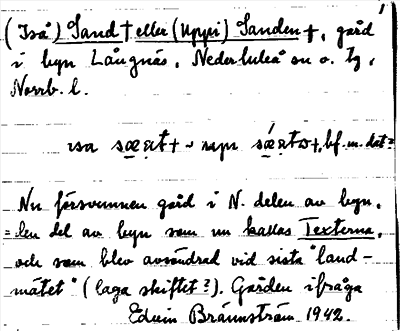 (Iså) Sand † eller (Uppi) Sanden †, gård
i byn Långnäs, Nederluleå sn o. tg,
Norrb. l.
Nu försvunnen gård i N. delen av byn,
= den del av byn som nu kallas Texterna,
och som blev avsöndrad vid sista "land-
mätet" (laga skiftet?). Gården ifråga
Edvin Brännström 1942.